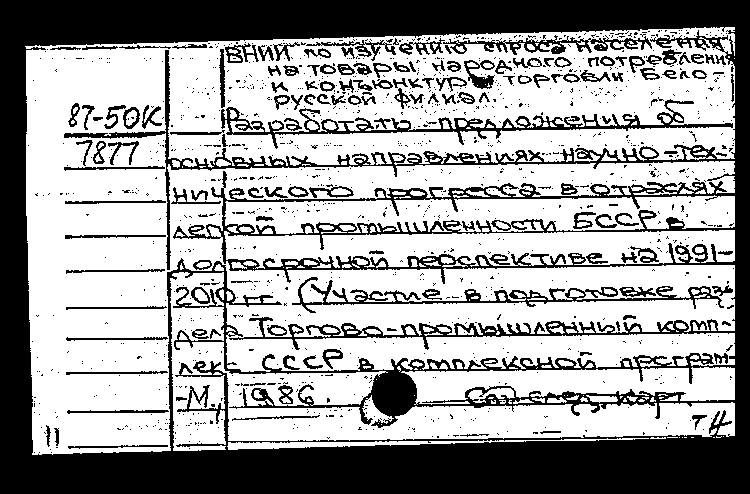 ВНИИ по изучению спроса населения
на товары народного потребления
и конъюнктуры торговли Бело-
русской филиал.
87-50К
7877
Разработать предложения об
основных направлениях научно-тех-
нического прогресса в отраслях
легкой промышленности БССР в
долгосрочной перспективе на 1991-
2010 гг. (Участие в подготовке раз-
дела Торгово-промышленный комп-
лекс СССР в комплексной програм-
-М., 1986.
См. след. карт.
11
т4